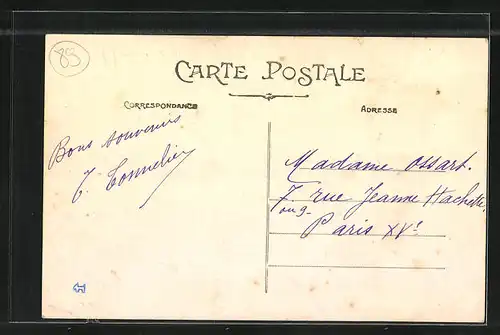 89
CARTE POSTALE
CORRESPONDANCE
ADRESSE
Bons souvenirs
Madame Ossart.
7. rue Jeanne Hachette.
ou 9
Paris XVe